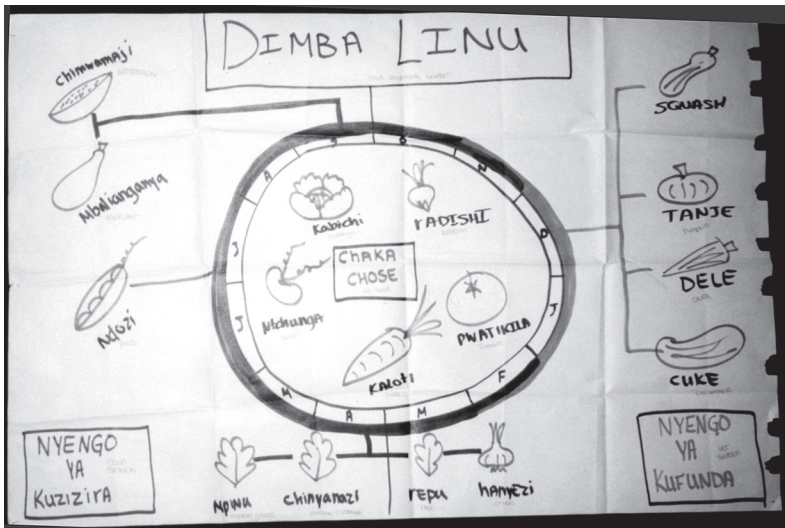 DIMBA LINU
Chimwamaji
Mbaliangaya
Ndozi
SQUASH
TANJE
DELE
CUKE
A
S
O
N
D
J
F
M
A
M
J
J
Kabichi
rADISHI
CHAKA
CHOSE
Ntchunga
PWATIKILA
KALOTI
NYENGO
YA
KUZIZIRA
MPWU
chinyanazi
repu
hanyezi
NYENGO
YA
KUFUNDA